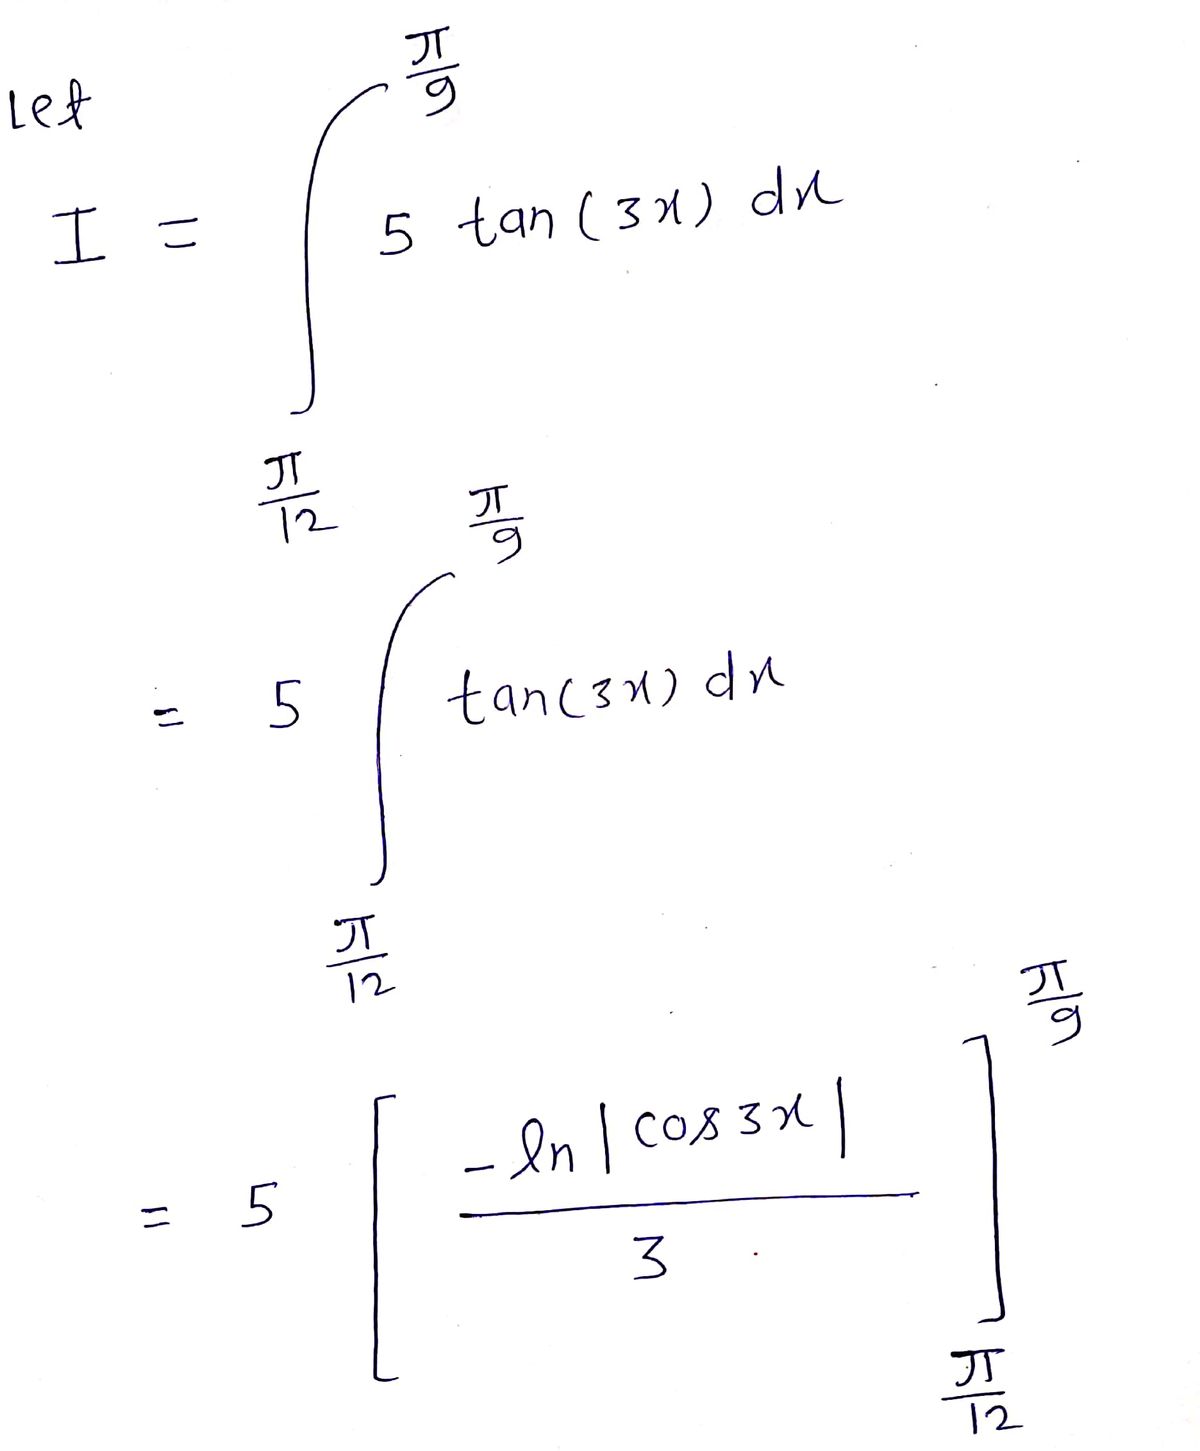 Let
I = ∫_{π/12}^{π/9} 5 tan(3x) dx
= 5 ∫_{π/12}^{π/9} tan(3x) dx
= 5 [ -ln|cos3x| / 3 ]_{π/12}^{π/9}